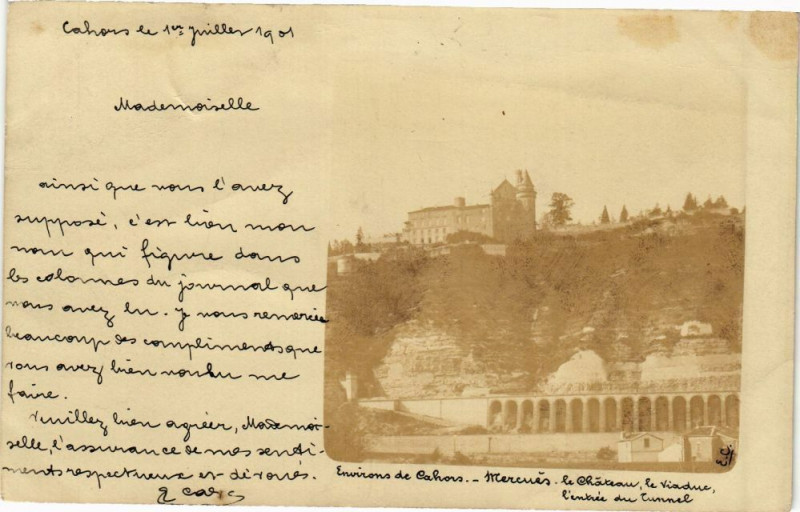 Cahors le 1er Juillet 1901
Mademoiselle
ainsi que vous l'avez
supposé, c'est bien mon
nom qui figure dans
les colonnes du journal que
vous avez lu. Je vous remercie
beaucoup des compliments que
vous avez bien voulu me
faire.
Veuillez bien agréer, Mademoi-
selle, l'assurance de mes senti-
ments respectueux et dévoués.
E.C.
Environs de Cahors. - Mercuès - le Château, le Viaduc,
l'entrée du Tunnel